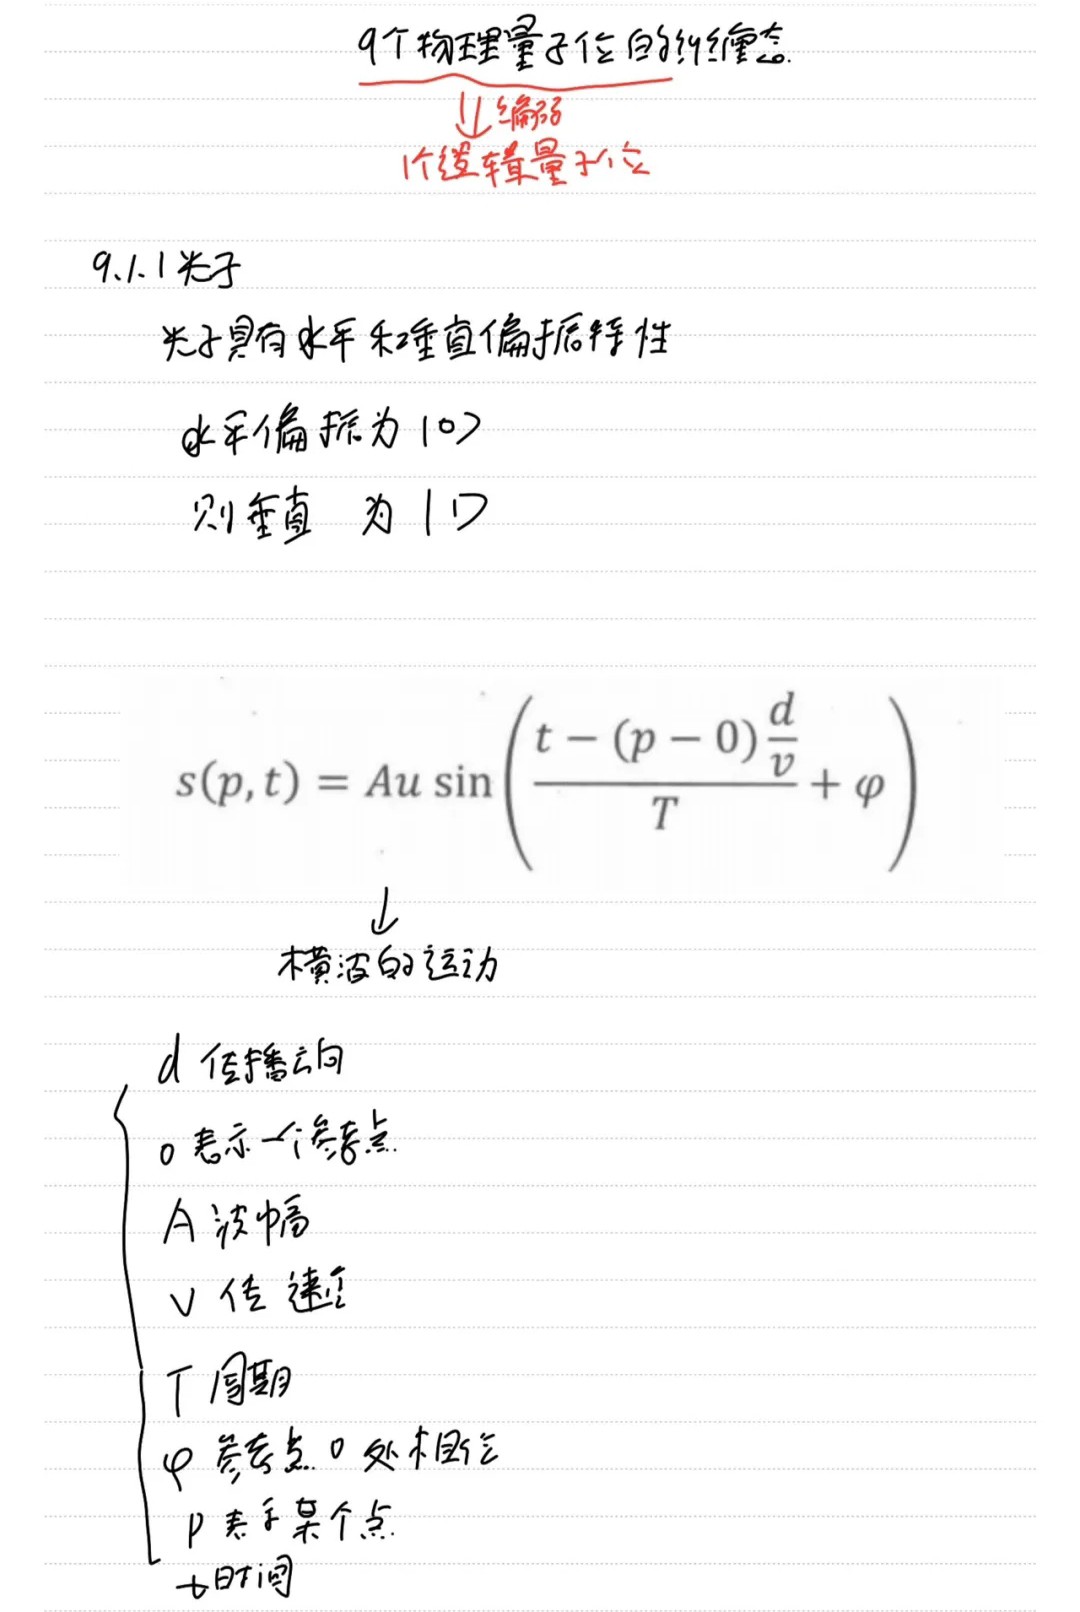 9个物理量子位的纠缠态.
编码
1个逻辑量子位
9.1.1 光子
光子具有水平和垂直偏振特性
水平偏振为 |0>
则垂直 为 |1>
s(p, t) = Au sin( (t − (p − 0) d/v) / T + φ )
横波的运动
d 传播方向
o 表示一个参考点.
A 波幅
v 传速度
T 周期
φ 参考点 o 处相位
p 表示某个点
t 时间